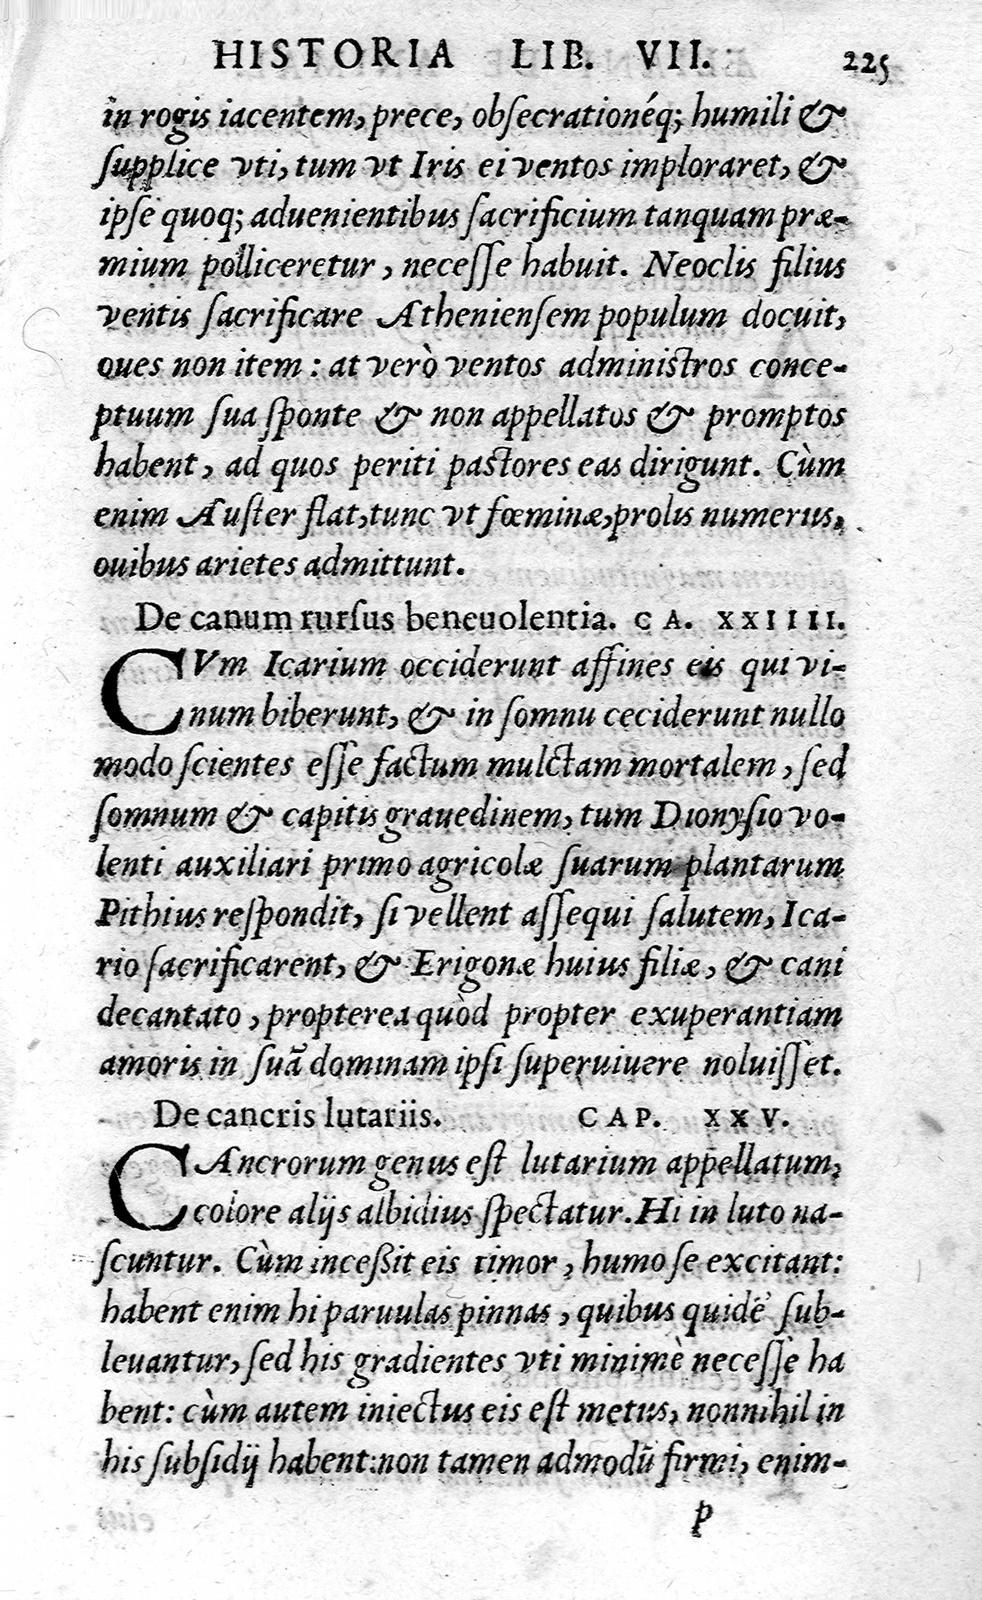 HISTORIA LIB. VII. 225
in rogis iacentem, prece, obſecrationéq; humili &
ſupplice vti, tum vt Iris ei ventos imploraret, &
ipſe quoq; aduenientibus ſacrificium tanquam præ-
mium polliceretur, neceſſe habuit. Neoclis filius
ventis ſacrificare Athenienſem populum docuit,
oues non item: at verò ventos adminiſtros conce-
ptuum ſua ſponte & non appellatos & promptos
habent, ad quos periti paſtores eas dirigunt. Cùm
enim Auſter flat, tunc vt fœminæ, prolis numerus,
ouibus arietes admittunt.
De canum rurſus beneuolentia. CA. XXIIII.
CVm Icarium occiderunt affines eis qui vi-
num biberunt, & in ſomnu ceciderunt nullo
modo ſcientes eſſe factum mulctam mortalem, ſed
ſomnum & capitis grauedinem, tum Dionyſio vo-
lenti auxiliari primo agricolæ ſuarum plantarum
Pithius reſpondit, ſi vellent aſſequi ſalutem, Ica-
rio ſacrificarent, & Erigonæ huius filiæ, & cani
decantato, propterea quòd propter exuperantiam
amoris in ſuā dominam ipſi ſuperuiuere noluiſſet.
De cancris lutariis. CAP. XXV.
CAncrorum genus eſt lutarium appellatum,
colore alijs albidius ſpectatur. Hi in luto na-
ſcuntur. Cùm inceßit eis timor, humo ſe excitant:
habent enim hi paruulas pinnas, quibus quidē ſub-
leuantur, ſed his gradientes vti minimè neceſſe ha
bent: cùm autem iniectus eis eſt metus, nonnihil in
his ſubſidij habent: non tamen admodū firmi, enim-
p